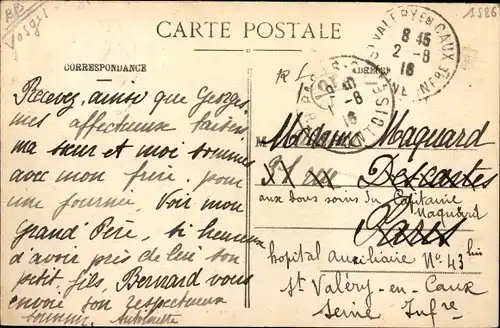 BB
Vosges
1586
CARTE POSTALE
CORRESPONDANCE
ADRESSE
ST VALERY EN CAUX
8 45
2 - 8
16
SEINE INFRE
Recevez, ainsi que Georges
mes affectueux baisers
ma sœur et moi sommes
avec mon frère, pour
une journée. Voir mon
Grand Père, si heureux
d'avoir près de lui son
petit fils, Bernard vous
envoie son respectueux
souvenir Antoinette
Madame Maquard
Descartes
aux bons soins du Capitaine
Maquard
Paris
hopital auxiliaire No 43 bis
St Valéry-en-Caux
Seine Infre